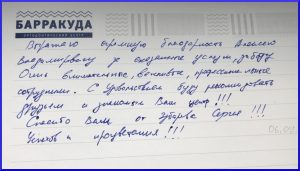 БАРРАКУДА
ОРТОПЕДИЧЕСКИЙ ЦЕНТР
Выражаю огромную благодарность Алексею
Владимировичу за оказанные услуги, за
Очень внимательные, вежливые, профессиональные
сотрудники. С удовольствием буду рекомендовать
друзьям и знакомым Ваш центр!!!
Спасибо Вам от Сергея!!!
Успехов и процветания!!!
06.09